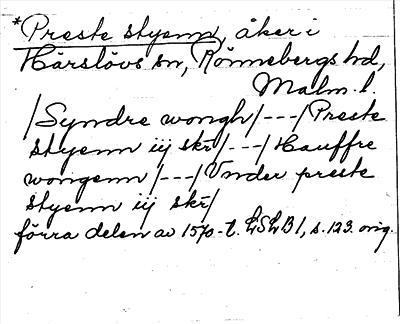 *Preste styenn, åker i
Härslövs sn, Rönnebergs hd,
Malm. l.
/Syndre wongh/---/Preste
styenn iij skr/---/Hauffre
wongenn/---/Vnder preste
styenn iij skr/
förra delen av 1570-t. LSLB 1, s. 123. orig.